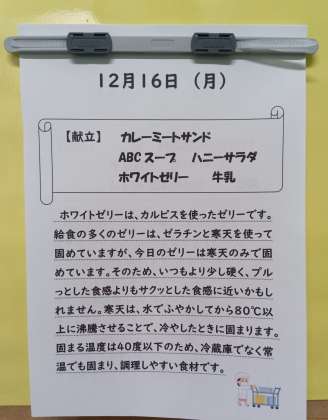 12月16日 （月）
【献立】 カレーミートサンド
ABCスープ ハニーサラダ
ホワイトゼリー 牛乳
ホワイトゼリーは、カルピスを使ったゼリーです。
給食の多くのゼリーは、ゼラチンと寒天を使って
固めていますが、今日のゼリーは寒天のみで固
めています。そのため、いつもより少し硬く、プル
っとした食感よりもサクッとした食感に近いかもし
れません。寒天は、水でふやかしてから80℃以
上に沸騰させることで、冷やしたときに固まります。
固まる温度は40度以下のため、冷蔵庫でなく常
温でも固まり、調理しやすい食材です。